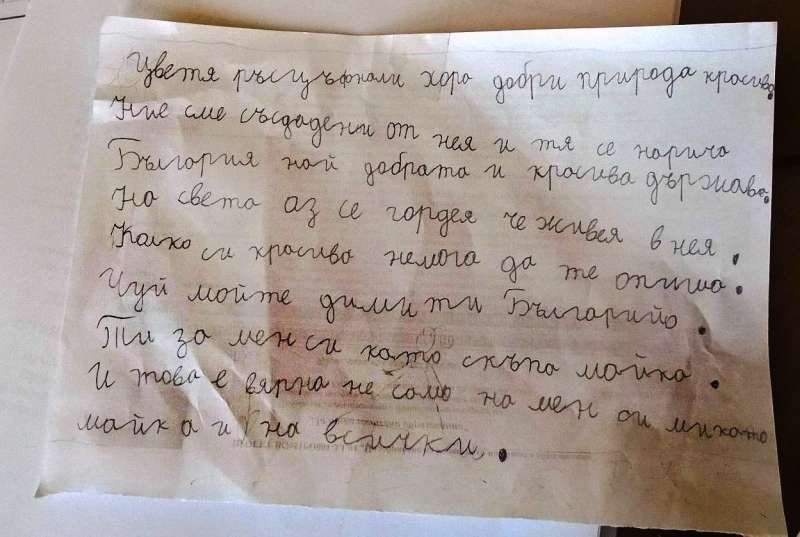 Цветя ръсцъфнали хора добри природа красива.
Ние сме създадени от нея и тя се нарича
България най добрата и красива държава.
На света аз се гордея че живея в нея.
Колко си красива немога да те опиша.
Чуй мойте думи ти Българийо.
Ти за мен си като скъпа майка.
И това е вярна не само на мен си ми като
майка и на всички.